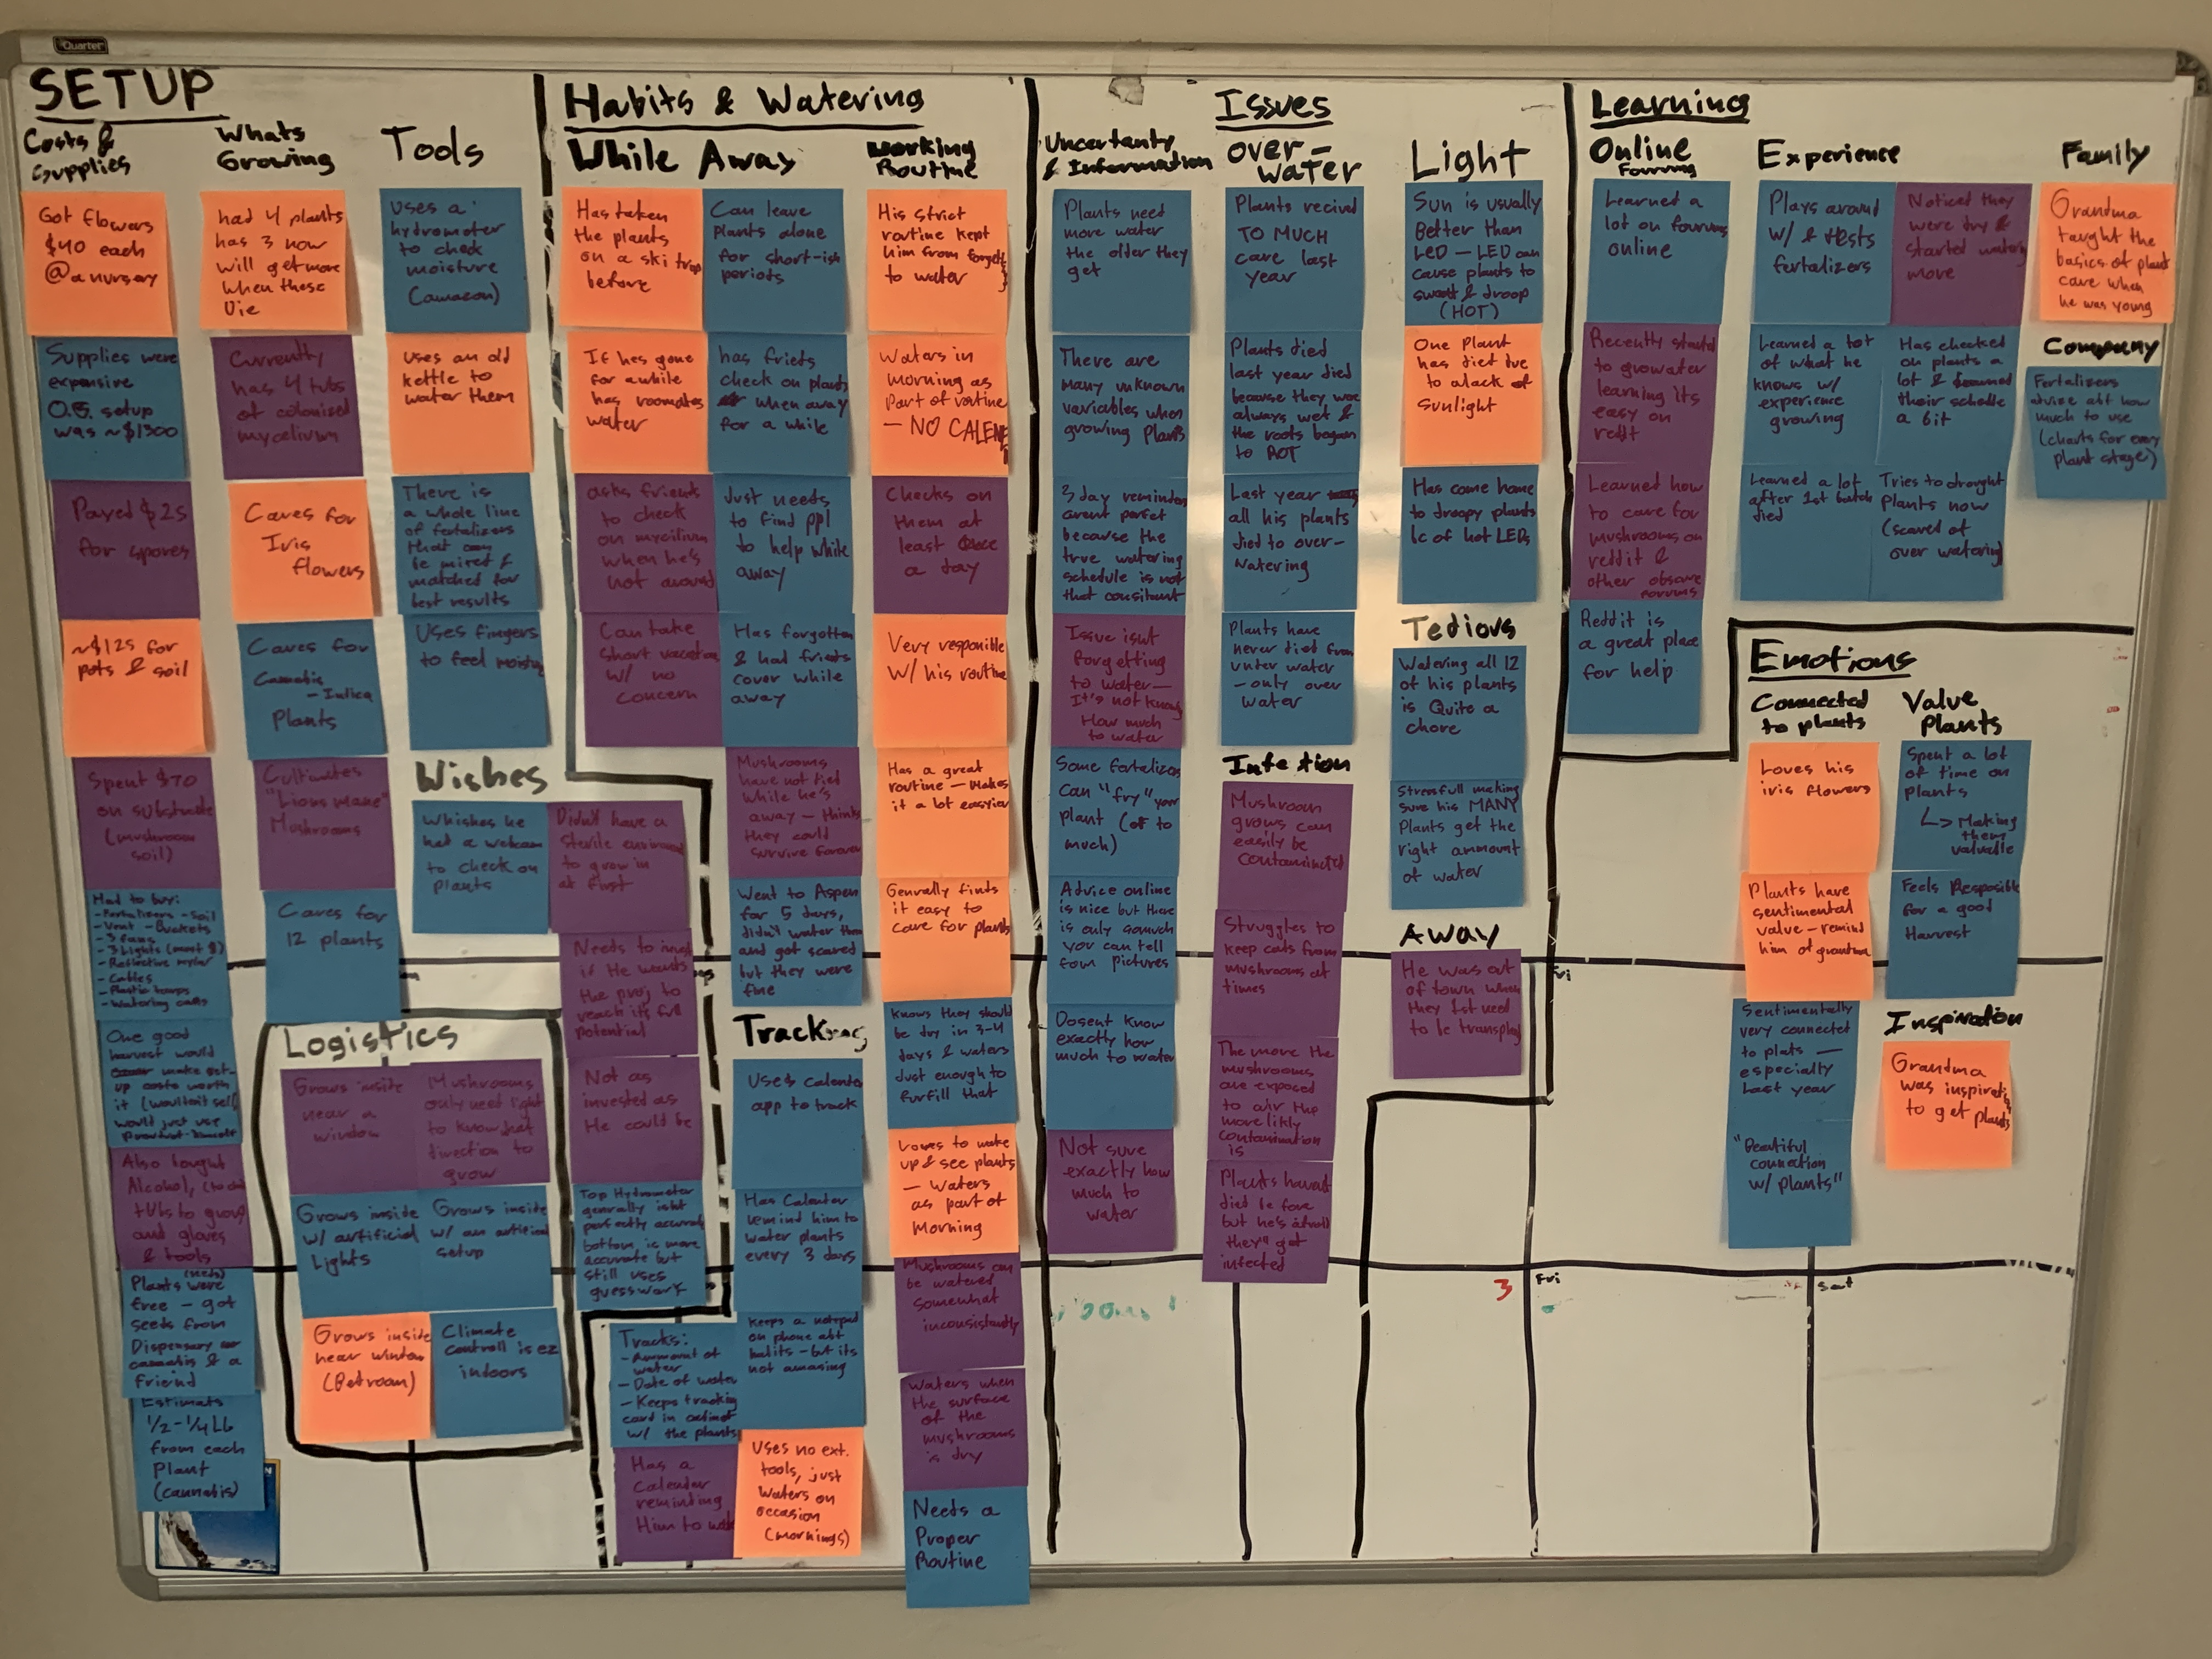 Quarter
SETUP
Costs &
Supplies
Got flowers
$40 each
@ a nursery
Supplies were
expensive
O.G. setup
was ~$1300
Payed $25
for spores
~$125 for
pots & soil
Spent $70
on substrate
(mushroom
soil)
Had to buy:
- Fertalizers - Soil
- Vent - Buckets
- 3 fans
- 3 Lights (most $)
- Reflective mylar
- Cables
- Plastic
- Watering cans
One good
harvest would
make set-
up costs worth
it (wouldn't sell)
would just use
Also bought
Alcohol,
tubs to grow,
and gloves
& tools
Plants were
(seeds)
free - got
seeds from
Dispensary
cannabis & a
friend
Estimats
1/2 - 1/4 Lb
from each
Plant
(cannabis)
Whats
Growing
had 4 plants
has 3 now
will get more
when these
Die
Currently
has 4 tubs
of colonized
mycelium
Cares for
Iris
flowers
Cares for
Cannabis
- Indica
Plants
Cultivates
"Lions mane"
Mushrooms
Cares for
12 plants
Tools
Uses a
hydrometer
to check
moisture
(amazon)
Uses an old
kettle to
water them
There is
a whole line
of fertalizers
that can
be mixed &
matched for
best results
Uses fingers
to feel
Wishes
Whishes he
had a webcam
to check on
plants
Didn't have a
sterile
to grow in
at first
Needs to
if He wants
the proj to
reach its full
potential
Not as
invested as
He could be
Top Hydrometer
generally isnt
perfectly accurate
bottom is more
accurate but
still uses
guesswork
Logistics
Grows inside
near a
window
Mushrooms
only need light
to know what
direction to
grow
Grows inside
w/ artificial
Lights
Grows inside
w/ an artificial
setup
Grows inside
near window
(Betroom)
Climate
controll is ez
indoors
Habits & Watering
While Away
Has taken
the plants
on a ski trip
before
Can leave
plants alone
for short-ish
periods
If hes gone
for awhile
has roomates
water
has friets
check on plants
when away
for a while
asks friends
to check
on mycilium
when he's
not around
Just needs
to find ppl
to help while
away
Can take
short vacations
w/ no
concern
Has forgotten
& had friets
cover while
away
Mushrooms
have not died
while he's
away - thinks
they could
survive forever
Went to Aspen
for 5 days,
didn't water them
and got scared
but they were
fine
Tracking
Uses Calender
app to track
Has Calender
remind him to
water plants
every 3 days
Keeps a notepad
on phone abt
habits - but its
not amazing
Tracks:
- Ammount of
water
- Date of water
- Keeps tracking
card in
w/ the plants
Has a
Calendar
reminding
Him to
Uses no ext.
tools, just
waters on
occasion
(mornings)
Working
Routine
His strict
routine kept
him from
to water
Waters in
morning as
part of routine
— NO
Checks on
them at
least Once
a day
Very responible
w/ his routine
Has a great
routine - Makes
it a lot easyier
Generally finds
it easy to
care for plants
Knows they should
be dry in 3-4
days & waters
Just enough to
furfill that
Loves to wake
up & see plants
— Waters
as part of
Morning
Mushrooms can
be watered
somewhat
inconsistantly
Waters when
the surface
of the
mushrooms
is dry
Needs a
Proper
Routine
Issues
Uncertanty
& Information
Plants need
more water
the older they
get
There are
many unknown
variables when
growing Plants
3 day reminders
arent perfet
because the
true watering
schedule is not
that consitant
Issue isnt
forgetting
to water—
It's not knowing
How much
to water
Some fertalizers
can "fry" your
plant (of to
much)
Advice online
is nice but there
is only so much
you can tell
from pictures
Dosent know
exactly how
much to water
Not sure
exactly how
much to
water
over-
water
Plants recived
TO MUCH
care last
year
Plants died
last year died
because they were
always wet &
the roots began
to ROT
Last year
all his plants
died to over-
watering
Plants have
never died from
unter water
- only over
water
Infection
Mushroom
grows can
easily be
contaminated
Struggles to
keep cats from
mushrooms at
times
The more the
mushrooms
are exposed
to air the
more likly
contamination
is
Plants havent
died before
but he's afraid
they'll get
infected
Light
Sun is usually
Better than
LED — LED can
cause plants to
sweat & droop
(HOT)
One Plant
has died due
to a lack of
sunlight
Has come home
to droopy plants
bc of hot LEDs
Tedious
Watering all 12
of his plants
is Quite a
chore
Stressfull making
sure his MANY
Plants get the
right ammount
of water
Away
He was out
of town when
they 1st need
to be
Learning
Online
Learned a
lot on
online
Recently started
to grow
learning its
easy on
reddit
Learned how
to care for
mushrooms on
reddit &
other obscure
Reddit is
a great place
for help
Experience
Plays around
w/ & tests
fertalizers
Noticed they
were dry &
started watering
more
Learned a lot
of what he
knows w/
experience
growing
Has checked
on plants a
lot & learned
their schedle
a bit
Learned a lot
after 1st batch
died
Tries to drought
Plants now
(scared of
over watering)
Family
Grandma
taught the
basics of plant
care when
he was young
Company
Fertalizers
advise abt how
much to use
(charts for every
plant stage)
Emotions
Connected
to plants
Loves his
iris flowers
Plants have
sentimental
value - remind
him of grandma
Sentimentally
very connected
to plats —
especially
last year
"Beautiful
connection
w/ plants"
Value
Plants
Spent a lot
of time on
plants
↳ Making
them
valuable
Feels Resposible
for a good
Harvest
Inspiration
Grandma
was inspiration
to get plants
Fri
3
Fri
Sat